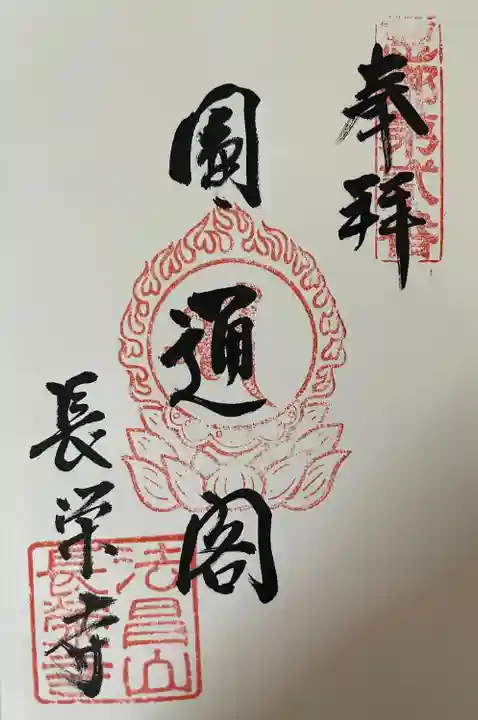 奉拝
圓通閣
長栄寺
法昌山
長栄寺